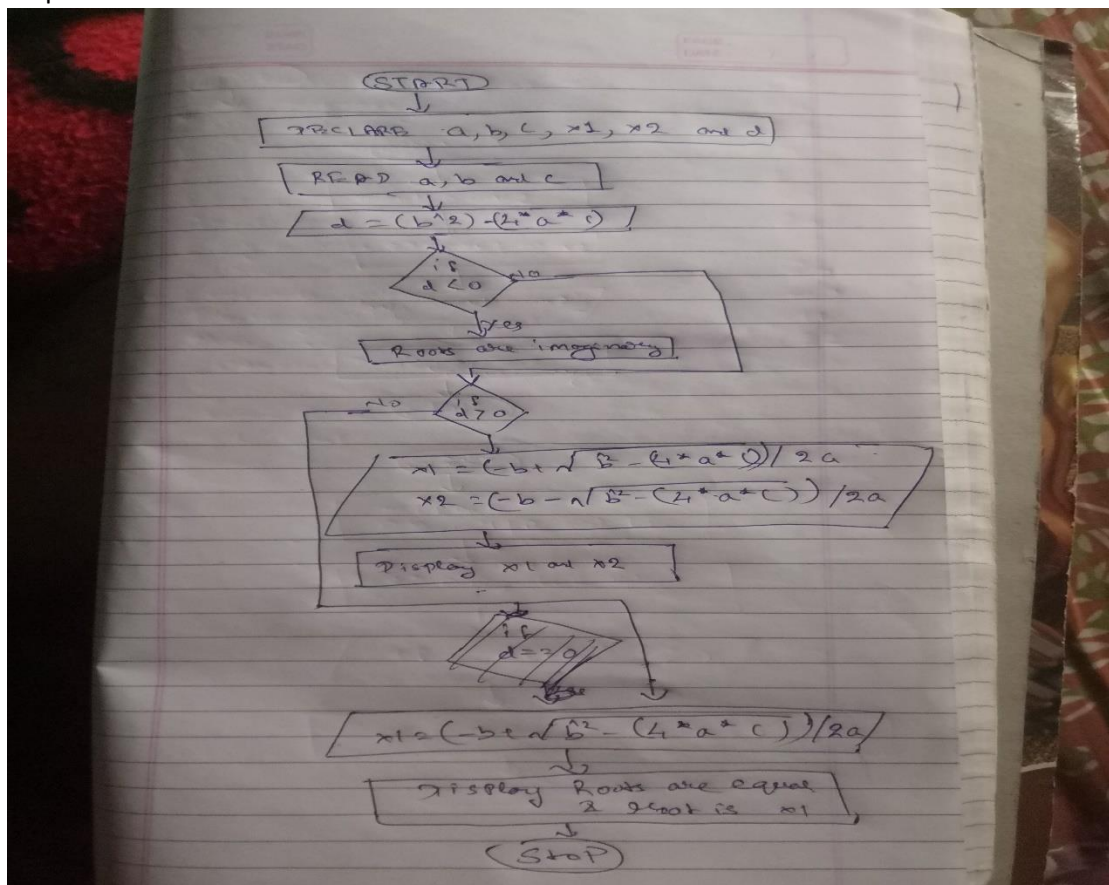 START
DECLARE a, b, c, x1, x2 and d
READ a, b and c
d = (b^2) - (4*a*c)
is
d < 0
No
Yes
Roots are imaginary
is
d > 0
No
x1 = (-b + √b² - (4*a*c)) / 2a
x2 = (-b - √b² - (4*a*c)) / 2a
Display x1 and x2
if
d == 0
x1 = (-b + √b² - (4*a*c)) / 2a
Display Roots are equal
& root is x1
STOP